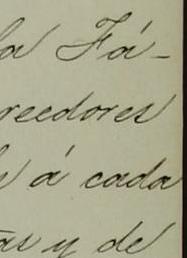 la Fá-
reedores
s á cada
as y de